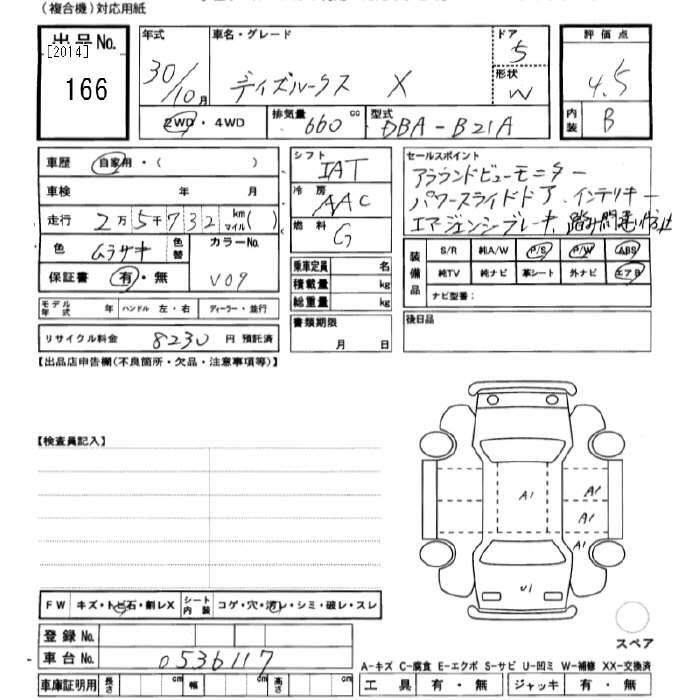 (複合機)対応用紙
出品No.
[2014]
166
年式
30/10月
車名・グレード
デイズルークス X
ドア
5
形状
W
評価点
4.5
内装
B
2WD・4WD
排気量
660 cc
型式
DBA-B21A
車歴 自家用・( )
車検 年 月
走行 2万5千732 km マイル( )
色 ムラサキ 色替
カラーNo.
V09
保証書 有・無
モデル年式 年 ハンドル 左・右 ディーラー・並行
リサイクル料金 8230 円 預託済
シフト
IAT
冷房
AAC
燃料
G
乗車定員 名
積載量 kg
総重量 kg
書類期限
月 日
セールスポイント
アラウンドビューモニター
パワースライドドア、インテリキー
エマージェンシーブレーキ、踏み間違い防止
装備品
S/R 純A/W P/S P/W ABS
純TV 純ナビ 革シート 外ナビ エアB
ナビ型番:
後日品
【出品店申告欄(不良箇所・欠品・注意事項等)】
【検査員記入】
A1
A1
A1
A1
U1
スペア
FW キズ・トビ石・割レX
シート内装 コゲ・穴・汚レ・シミ・破レ・スレ
登録No.
車台No. 0536117
車庫証明用 長さ cm 幅 cm 高さ cm
A-キズ C-腐食 E-エクボ S-サビ U-凹ミ W-補修 XX-交換済
工具 有・無 ジャッキ 有・無